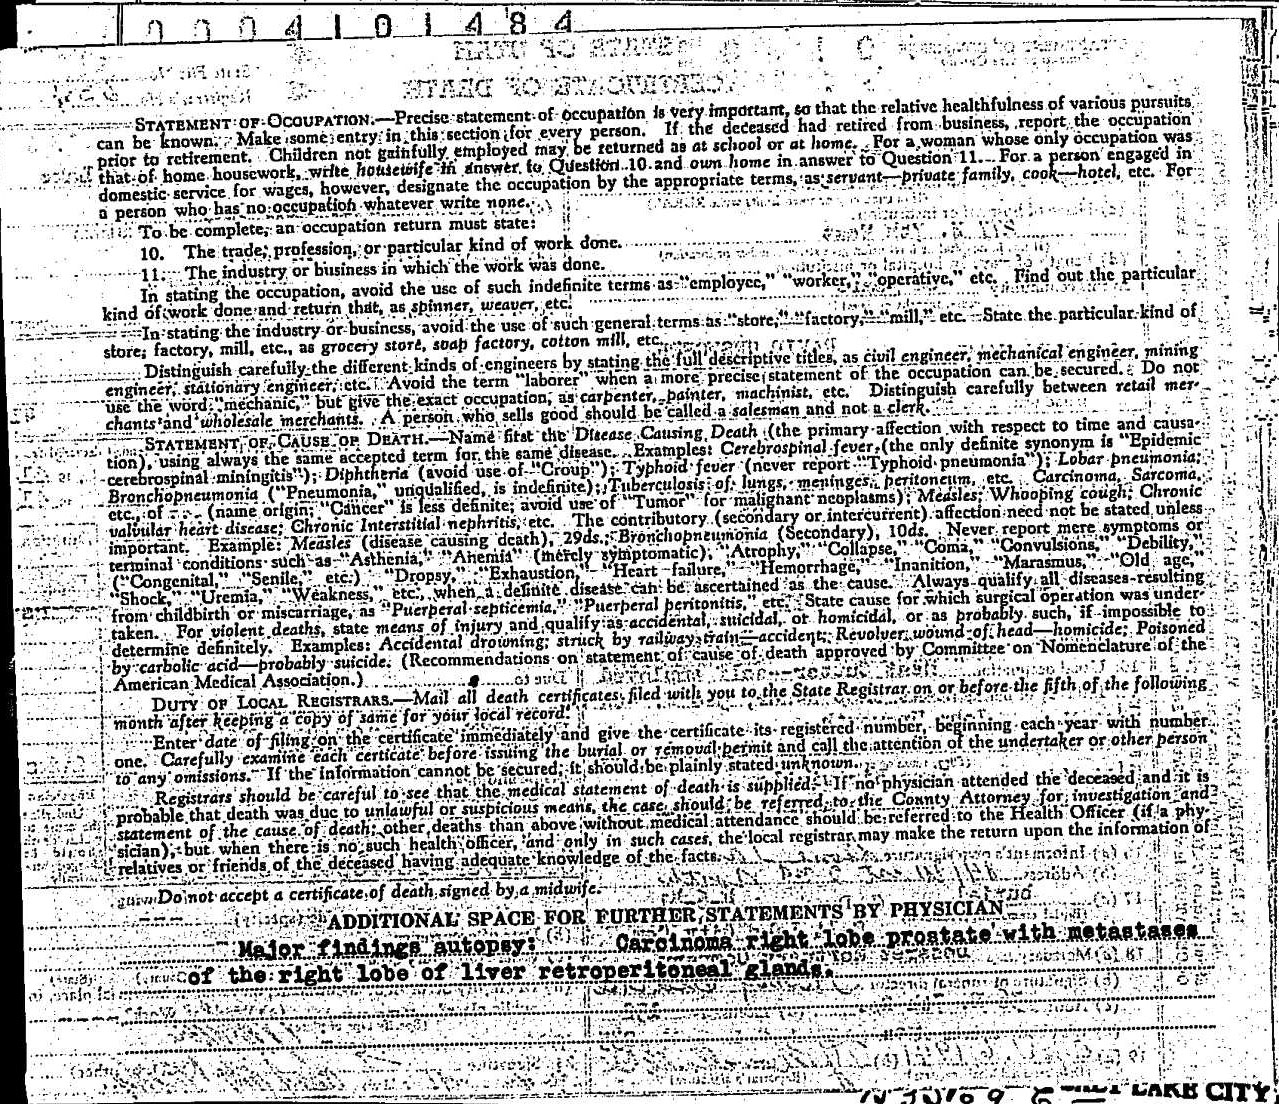 0004101484
STATEMENT OF OCCUPATION.—Precise statement of occupation is very important, so that the relative healthfulness of various pursuits
can be known. Make some entry in this section for every person. If the deceased had retired from business, report the occupation
prior to retirement. Children not gainfully employed may be returned as at school or at home. For a woman whose only occupation was
that of home housework, write housewife in answer to Question 10 and own home in answer to Question 11. For a person engaged in
domestic service for wages, however, designate the occupation by the appropriate terms, as servant—private family, cook—hotel, etc. For
a person who has no occupation whatever write none.
To be complete, an occupation return must state:
10. The trade, profession, or particular kind of work done.
11. The industry or business in which the work was done.
In stating the occupation, avoid the use of such indefinite terms as "employee," "worker," "operative," etc. Find out the particular
kind of work done and return that, as spinner, weaver, etc.
In stating the industry or business, avoid the use of such general terms as "store," "factory," "mill," etc. State the particular kind of
store, factory, mill, etc., as grocery store, soap factory, cotton mill, etc.
Distinguish carefully the different kinds of engineers by stating the full descriptive titles, as civil engineer, mechanical engineer, mining
engineer, stationary engineer, etc. Avoid the term "laborer" when a more precise statement of the occupation can be secured. Do not
use the word "mechanic," but give the exact occupation, as carpenter, painter, machinist, etc. Distinguish carefully between retail mer-
chants and wholesale merchants. A person who sells good should be called a salesman and not a clerk.
STATEMENT OF CAUSE OF DEATH.—Name first the Disease Causing Death (the primary affection with respect to time and causa-
tion), using always the same accepted term for the same disease. Examples: Cerebrospinal fever (the only definite synonym is "Epidemic
cerebrospinal miningitis"); Diphtheria (avoid use of "Croup"); Typhoid fever (never report "Typhoid pneumonia"); Lobar pneumonia;
Bronchopneumonia ("Pneumonia," unqualified, is indefinite); Tuberculosis of lungs, meninges, peritoneum, etc. Carcinoma, Sarcoma,
etc., of - - - (name origin; "Cancer" is less definite; avoid use of "Tumor" for malignant neoplasms); Measles; Whooping cough; Chronic
valvular heart disease; Chronic Interstitial nephritis, etc. The contributory (secondary or intercurrent) affection need not be stated unless
important. Example: Measles (disease causing death), 29ds.; Bronchopneumonia (Secondary), 10ds. Never report mere symptoms or
terminal conditions such as "Asthenia," "Anemia" (merely symptomatic), "Atrophy," "Collapse," "Coma," "Convulsions," "Debility,"
("Congenital," "Senile," etc.) "Dropsy," "Exhaustion," "Heart failure," "Hemorrhage," "Inanition," "Marasmus," "Old age,"
"Shock," "Uremia," "Weakness," etc., when a definite disease can be ascertained as the cause. Always qualify all diseases resulting
from childbirth or miscarriage, as "Puerperal septicemia," "Puerperal peritonitis," etc. State cause for which surgical operation was under-
taken. For violent deaths, state means of injury and qualify as accidental, suicidal, or homicidal, or as probably such, if impossible to
determine definitely. Examples: Accidental drowning; struck by railway train—accident; Revolver wound of head—homicide; Poisoned
by carbolic acid—probably suicide. (Recommendations on statement of cause of death approved by Committee on Nomenclature of the
American Medical Association.)
DUTY OF LOCAL REGISTRARS.—Mail all death certificates filed with you to the State Registrar on or before the fifth of the following
month after keeping a copy of same for your local record.
Enter date of filing on the certificate immediately and give the certificate its registered number, beginning each year with number
one. Carefully examine each certicate before issuing the burial or removal permit and call the attention of the undertaker or other person
to any omissions. If the information cannot be secured, it should be plainly stated unknown.
Registrars should be careful to see that the medical statement of death is supplied. If no physician attended the deceased and it is
probable that death was due to unlawful or suspicious means, the case should be referred to the County Attorney for investigation and
statement of the cause of death; other deaths than above without medical attendance should be referred to the Health Officer (if a phy-
sician), but when there is no such health officer, and only in such cases, the local registrar may make the return upon the information of
relatives or friends of the deceased having adequate knowledge of the facts.
Do not accept a certificate of death signed by a midwife.
ADDITIONAL SPACE FOR FURTHER STATEMENTS BY PHYSICIAN
Major findings autopsy: Carcinoma right lobe prostate with metastases
of the right lobe of liver retroperitoneal glands.
LAKE CITY